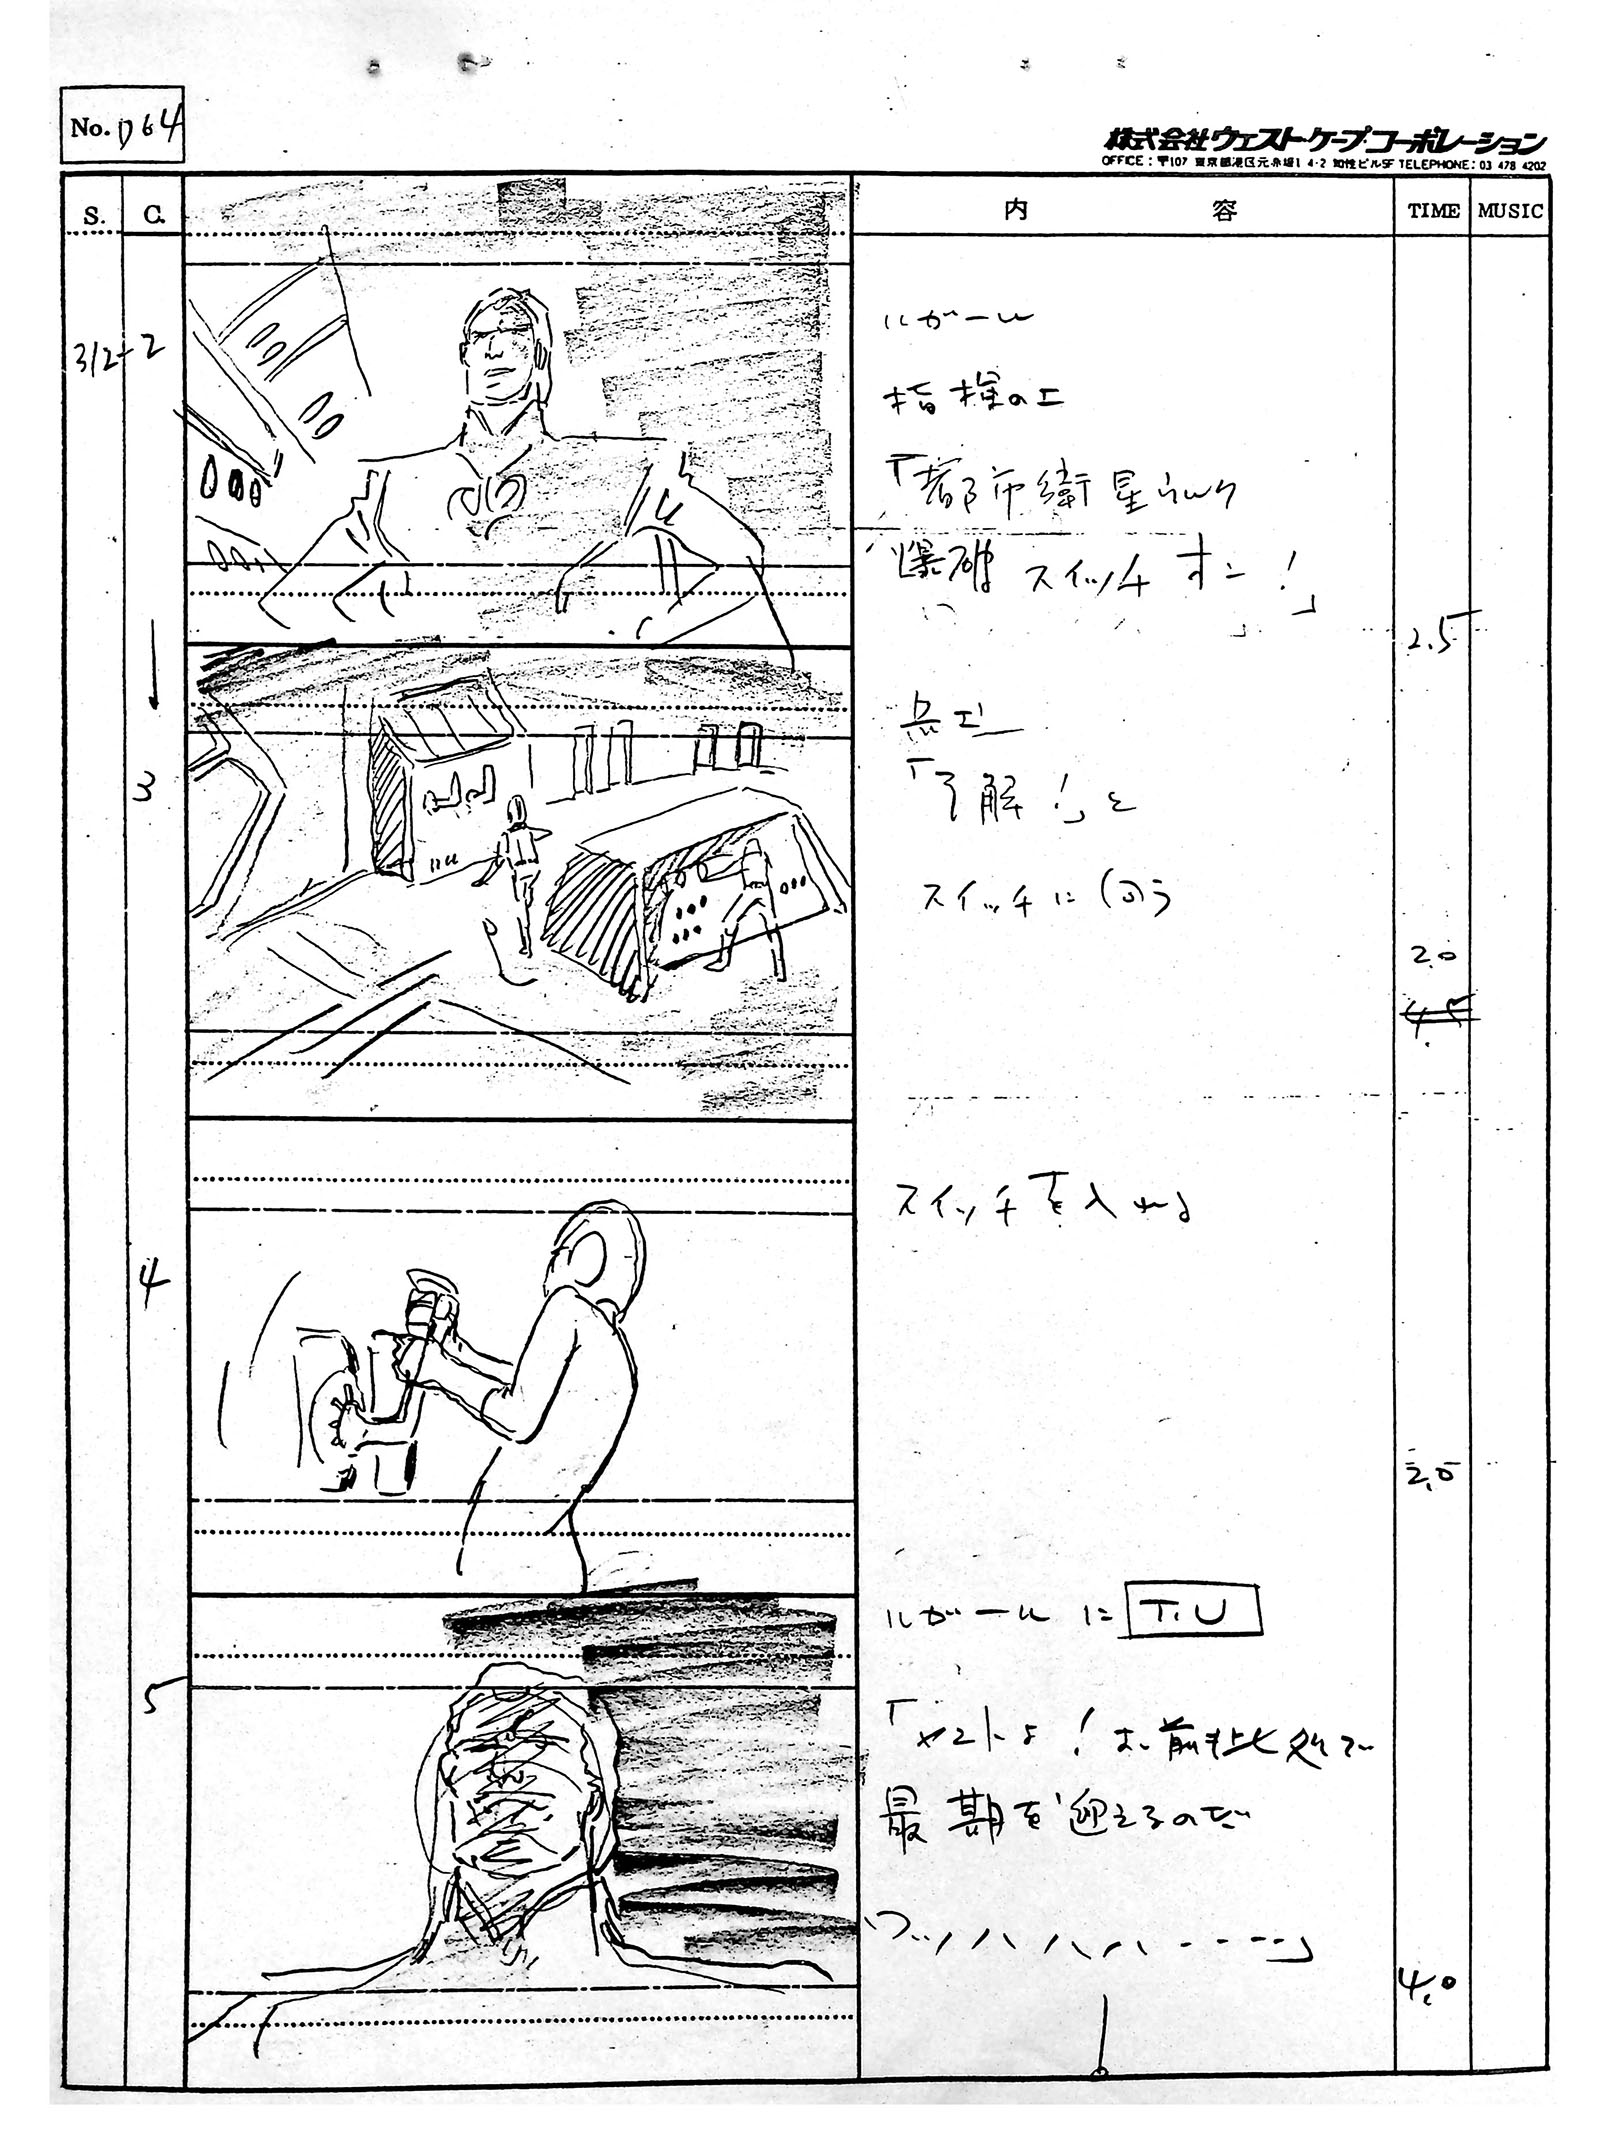 No. D64
株式会社ウェスト・ケープ・コーポレーション
OFFICE：〒107 東京都港区元赤坂1 4-2 知性ビル5F TELEPHONE：03 478 4202
S. C. 内 容 TIME MUSIC
312-2
ルガール
指揮の上
「都市衛星ウルク
爆破 スイッチ オン！」
2.5
3
兵士
「了解！」と
スイッチに向う
2.0
4.5
4
スイッチを入れる
2.0
5
ルガールに T.U
「ヤマトよ！お前も此処で
最期を迎えるのだ
ワッハハハハ・・・・」
4.0